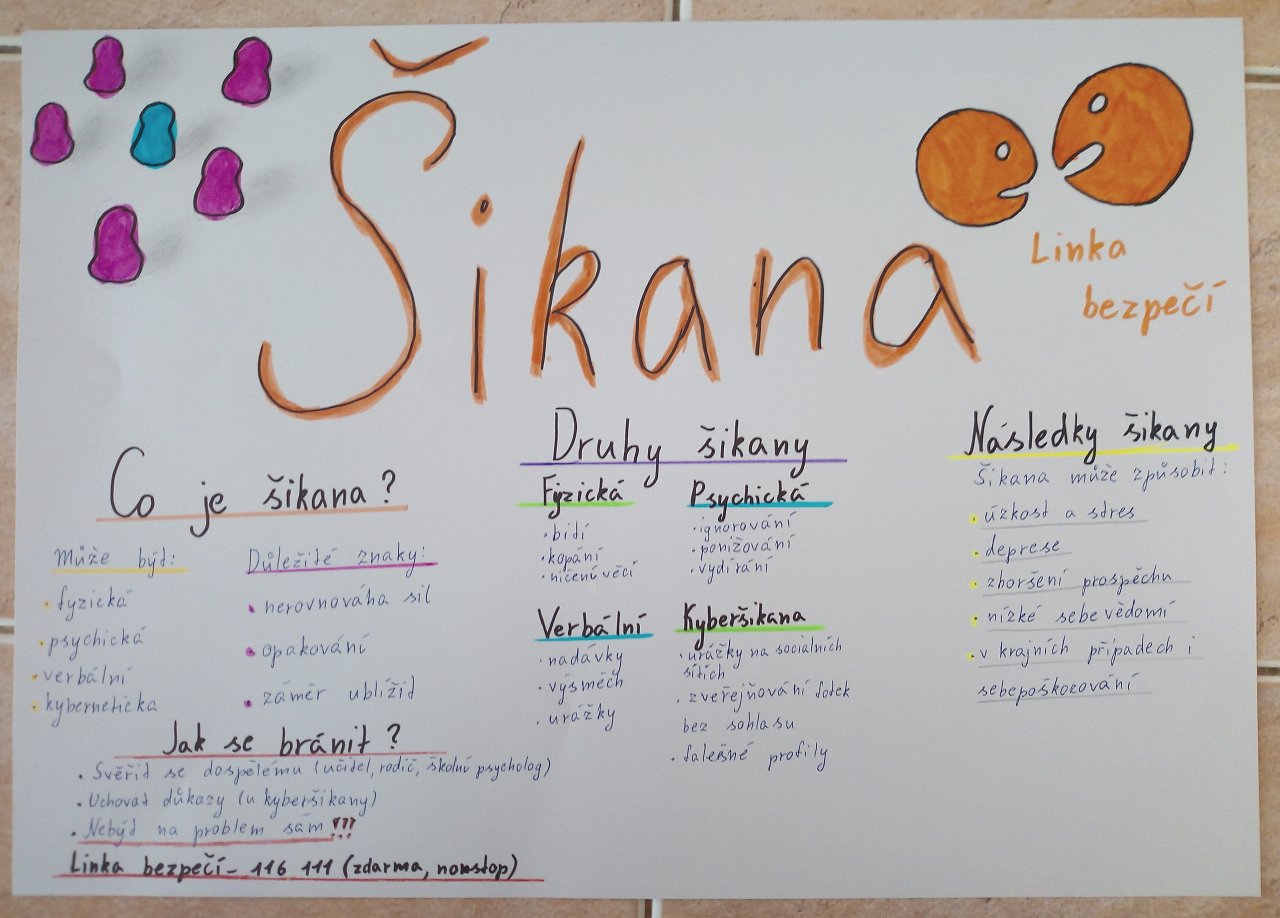 Šikana
Linka
bezpečí
Co je šikana?
Může být:
• fyzická
• psychická
• verbální
• kybernetická
Důležité znaky:
• nerovnováha sil
• opakování
• záměr ublížit
Druhy šikany
Fyzická
• bití
• kopání
• ničení věcí
Psychická
• ignorování
• ponižování
• vydírání
Verbální
• nadávky
• výsměch
• urážky
Kyberšikana
• urážky na sociálních
sítích
• zveřejňování fotek
bez sohlasu
• falešné profily
Následky šikany
Šikana může způsobit:
• úzkost a stres
• deprese
• zhoršení prospěchu
• nízké sebevědomí
• v krajních případech i
sebepoškozování
Jak se bránit?
• Svěřit se dospělému (učitel, rodič, školní psycholog)
• Uchovat důkazy (u kyberšikany)
• Nebýt na problem sám!!!
Linka bezpečí - 116 111 (zdarma, nonstop)